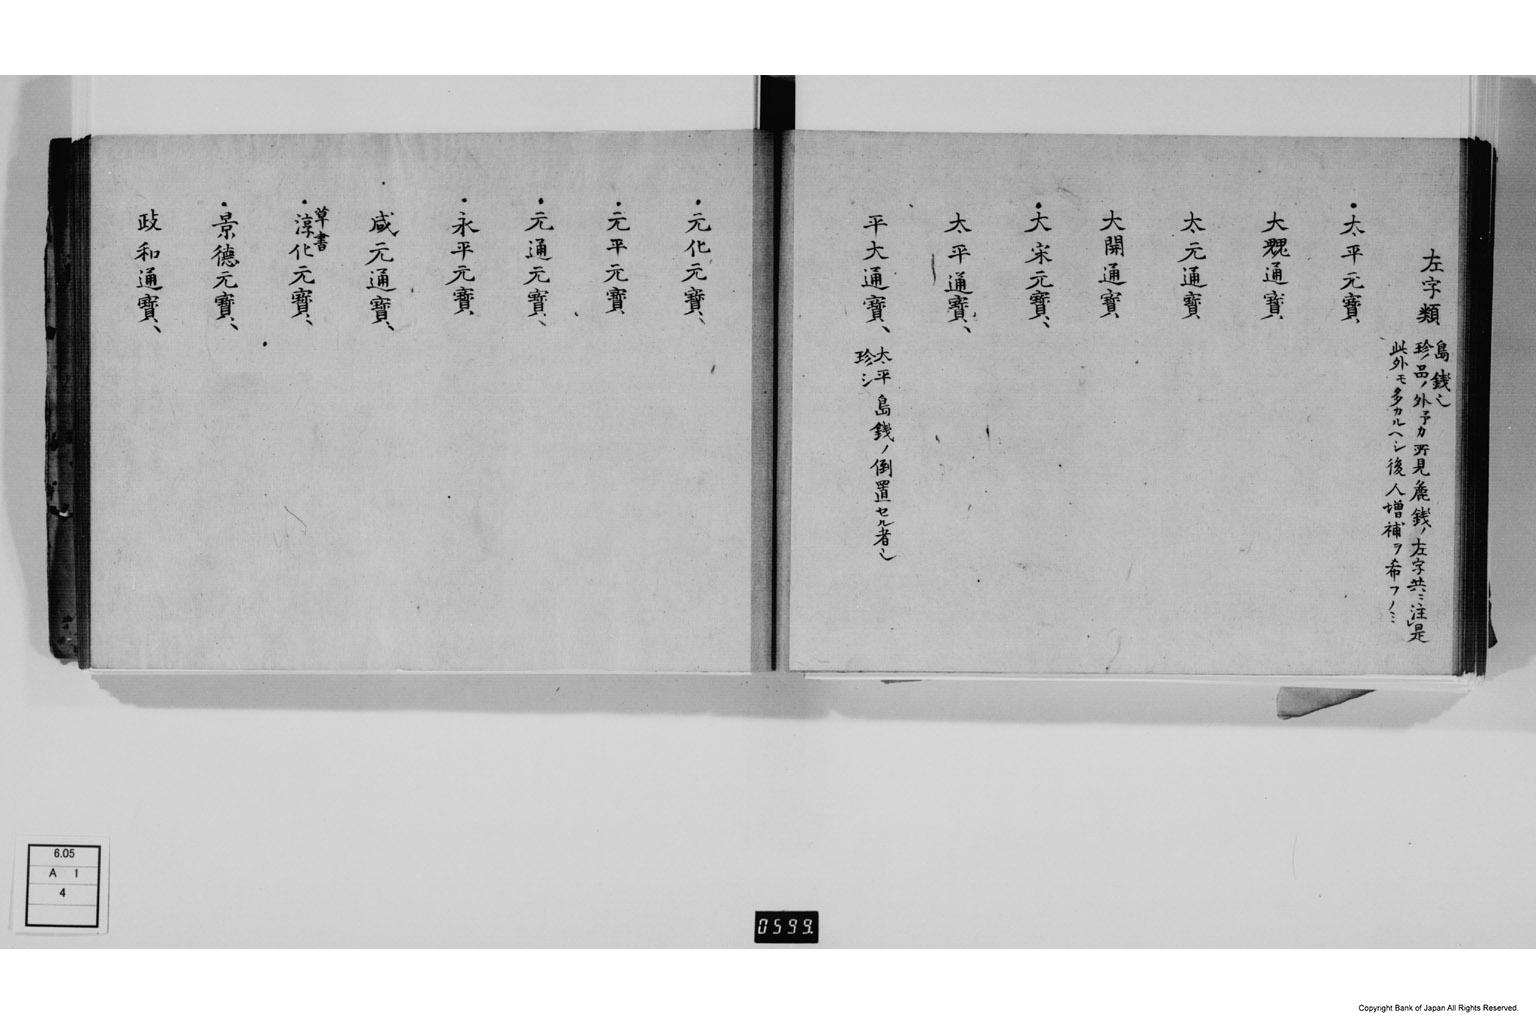 左字類
島銭也
珍ノ品ノ外予カ所見麁銭ノ左字共ニ注是
此外モ多カルヘシ後人増補ヲ希フノミ
・太平元寶、
大魏通寶、
太元通寶
大開通寶
・大宋元寶、、
太平通寶、、
平大通寶、、
太平島銭ノ倒置セル者也
珍シ
・元化元寶、、
・元平元寶、
・元通元寶、、
・永平元寶、
・咸元通寶、、
草書
・淳化元寶、、
・景德元寶、、
政和通寶、、
6.05
A 1
4
0599.
Copyright Bank of Japan All Rights Reserved.